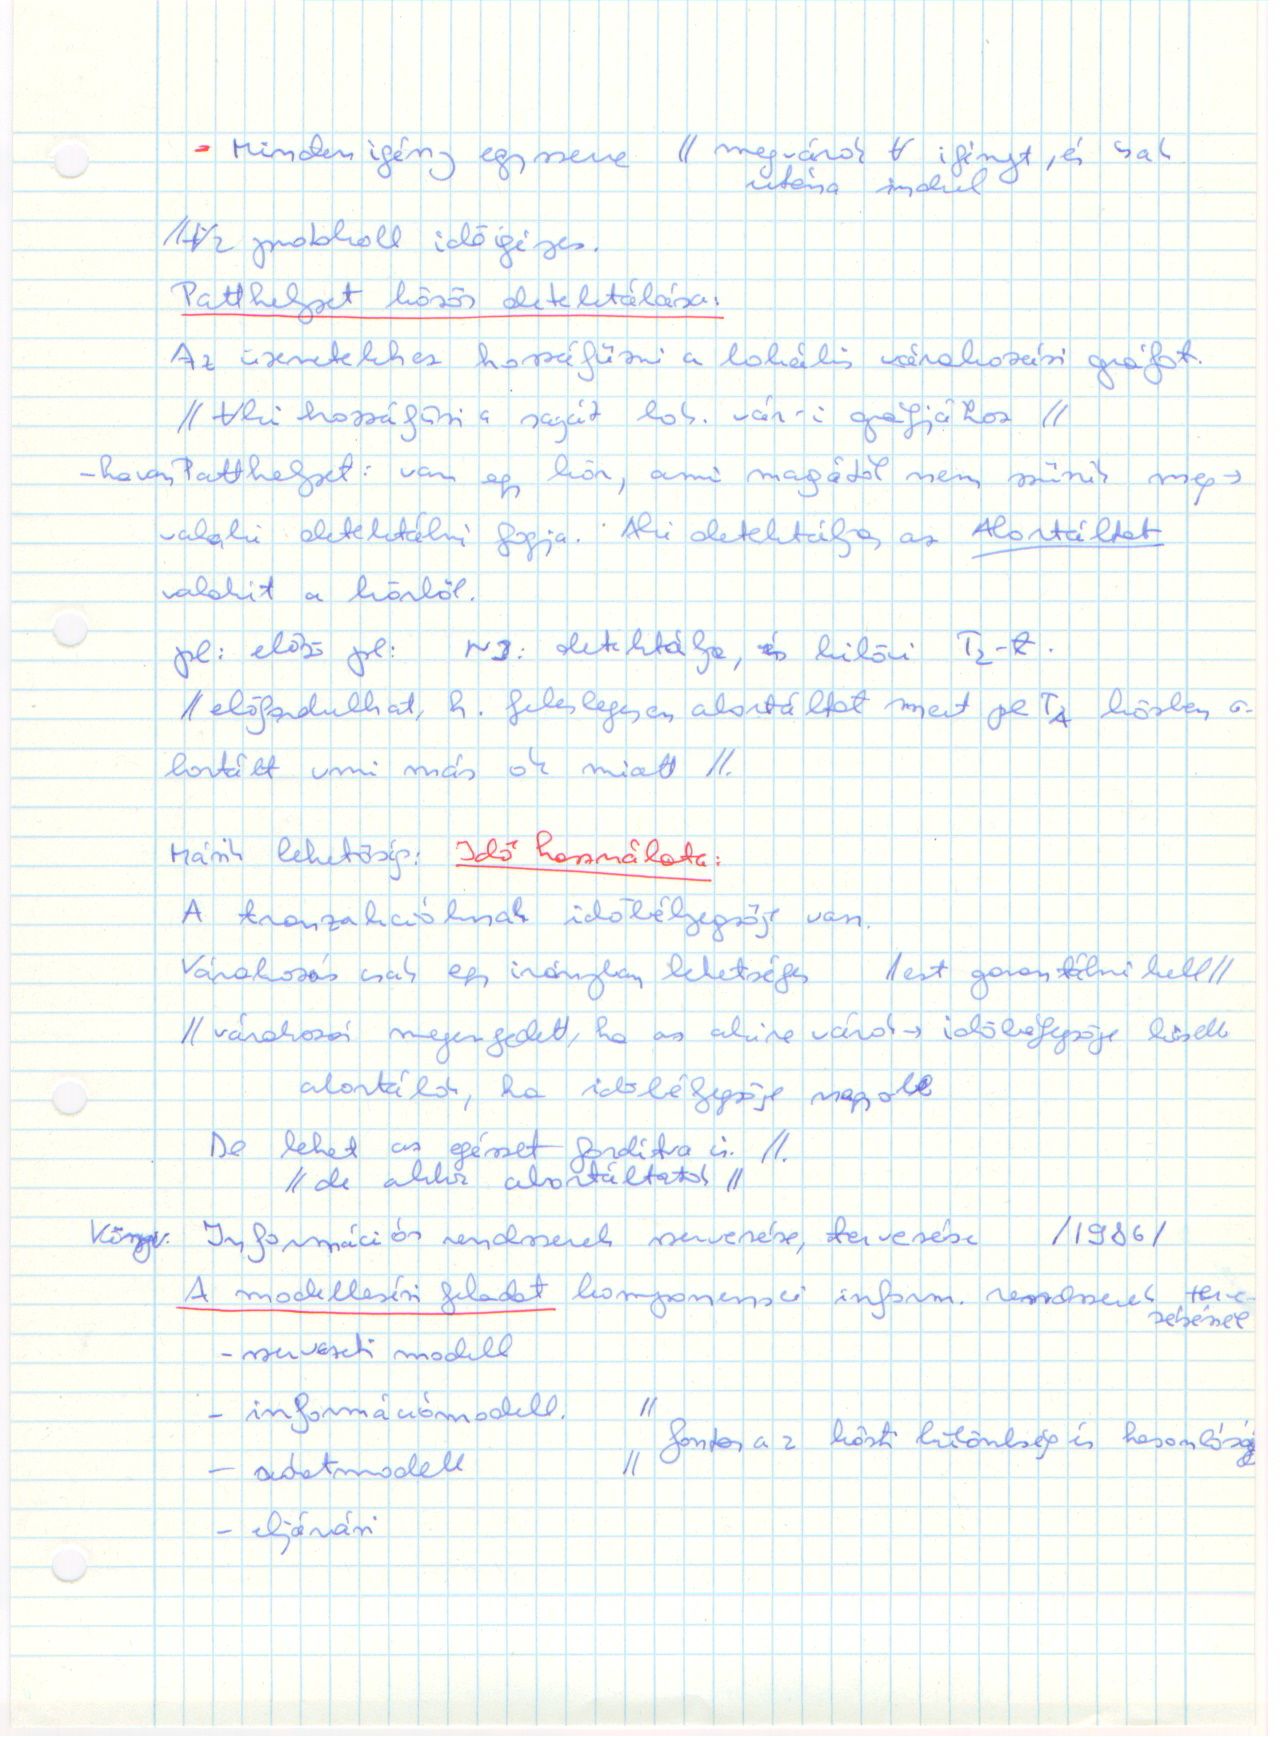 - Minden igény egyszerre // megvárok ∀ igényt, és csak
utána indul
// Az protokoll időigényes.
Patthelyzet közös detektálása:
Az üzenetekhez hozzáfűzni a lokális várakozási gráfot.
// Aki hozzáfűzi a saját lok. vár-i gráfjához //
- ha van Patthelyzet: van egy kör, ami magától nem szűnik meg →
valaki detektálni fogja. Aki detektálja az Abortáltat
valakit a körből.
pl: előző pl: N3: detektálja, és kilövi T2-t.
// előfordulhat, h. feleslegesen abortáltat mert pl T4 közben a-
bortált vmi más ok miatt //.
Másik lehetőség: Idő használata:
A tranzakcióknak időbélyegzője van.
Várakozás csak egy irányban lehetséges // ezt garantálni kell //
// várakozás megengedett, ha az akire várok → időbélyegzője kisebb
abortálok, ha időbélyegzője nagyobb
De lehet az egészet fordítva is. //.
// de akkor abortáltatok //
Könyv: Információs rendszerek szervezése, tervezése /1986/
A modellezési feladat komponensei inform. rendszerek terve-
zésénél
- szervezeti modell
- információmodell. //
fontos a 2 közti különbség és hasonlóság
- adatmodell //
- eljárási